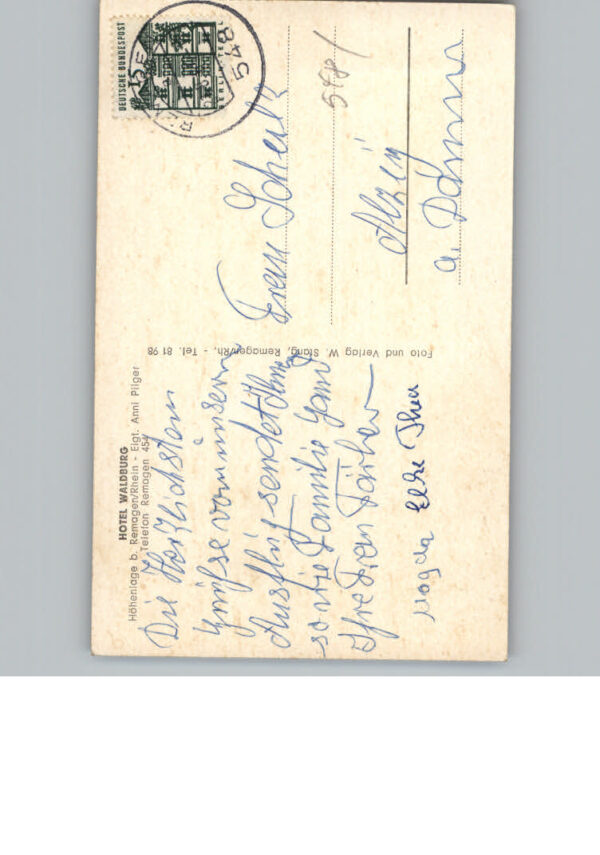 HOTEL WALDBURG
Höhenlage b. Remagen/Rhein - Eigt. Anni Pilger
Telefon Remagen 454
Die Herzlichsten
Grüße von unsern
Ausflug sendet Ihnen
sowie Familie
Ihre Frau Färber
Magda Elke Thea
Foto und Verlag W. Stang, Remagen/Rh. - Tel. 81 98
DEUTSCHE BUNDESPOST
15
548
Frau
5481